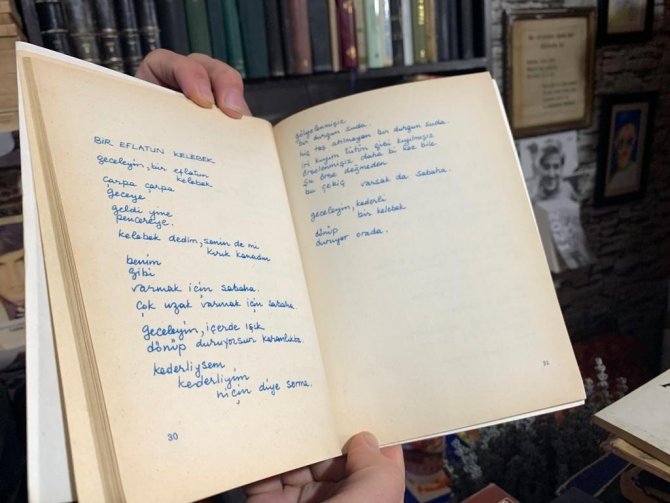 BİR EFLATUN KELEBEK
geceleyin, bir eflatun
kelebek
çarpa çarpa
geceye
geldi yine
pencereye.
kelebek dedim, senin de mi
kırık kanadın
benim
gibi
varmak için sabaha.
çok uzak varmak için sabaha.
geceleyin, içerde ışık
dönüp duruyorsun karanlıkta.
kederliysem
kederliyim
niçin diye sorma.
30
gölgelenmişiz
bir durgun suda.
hiç taş atılmayan bir durgun suda.
iri kıyım tütün gibi kıyılmışız
örselenmişiz daha bi kez bile
şu örse değmeden
bu çekiç varsak da sabaha.
geceleyin, kederli
bir kelebek
dönüp
duruyor orada.
31